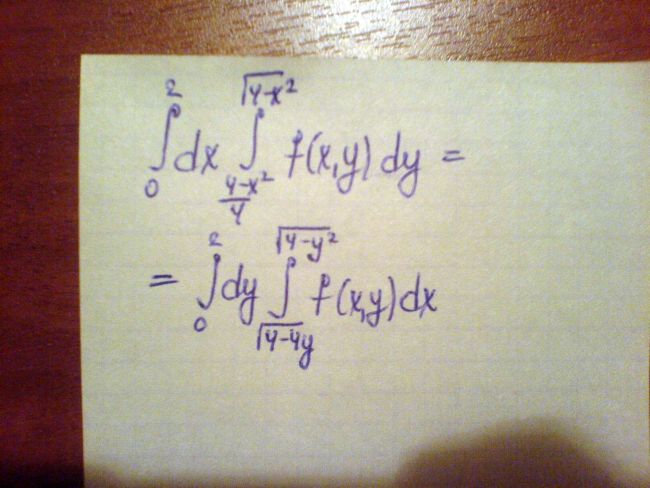 ∫₀² dx ∫_{(4-x²)/4}^{√(4-x²)} f(x,y) dy =
= ∫₀² dy ∫_{√(4-4y)}^{√(4-y²)} f(x,y) dx